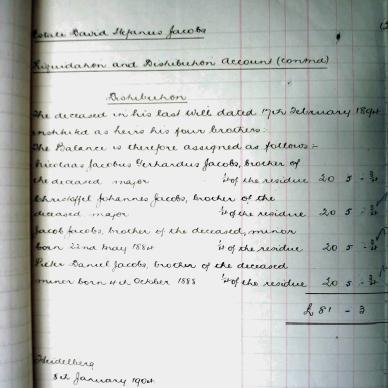 Estate David Stefanus Jacobs
Liquidation and Distribution Account (contnd)
Distribution
The deceased in his last Will dated 17th February
institute as heirs his four brothers:
The Balance is therefore assigned as follows:-
Nicolaas Jacobus Gerhardus Jacobs, brother of
the deceased major ¼ of the residue 20 5 - ¾
Christoffel Johannes Jacobs, brother of the
deceased major ¼ of the residue 20 5 - ¾
Jacob Jacobs, brother of the deceased, minor
born 22nd May 1884 ¼ of the residue 20 5 - ¾
Pieter Daniel Jacobs, brother of the deceased
minor born 4th October 1888 ¼ of the residue 20 5 - ¾
£ 81 - 3
Heidelberg
8th January 1904